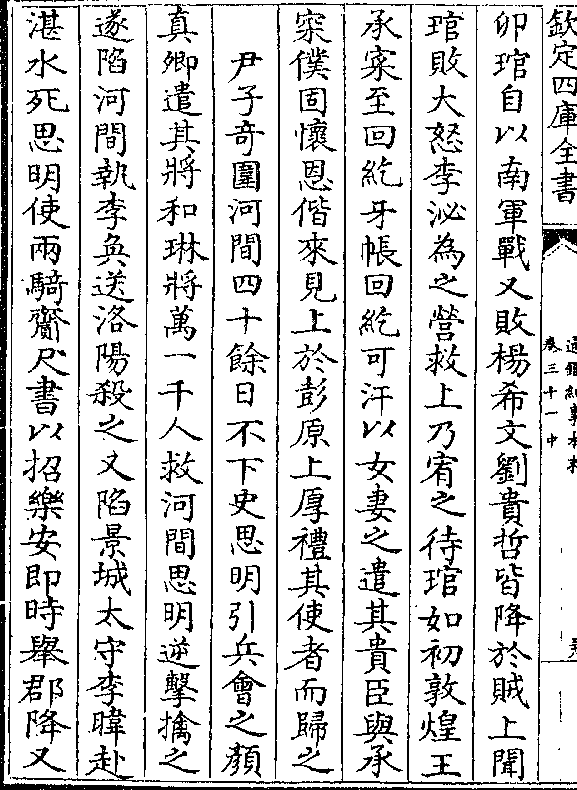 欽定四庫全書
通鑑紀事本末
卷三十一中
卯琯自以南軍戰又敗楊希文劉貴哲皆降於賊上聞
琯敗大怒李泌為之營救上乃宥之待琯如初敦煌王
承寀至回紇牙帳回紇可汗以女妻之遣其貴臣與承
寀僕固懷恩偕來見上於彭原上厚禮其使者而歸之
尹子竒圍河間四十餘日不下史思明引兵會之顔
真卿遣其將和琳將萬一千人救河間思明逆擊擒之
遂陷河間執李奐送洛陽殺之又陷景城太守李暐赴
湛水死思明使兩騎齎尺書以招樂安即時舉郡降又